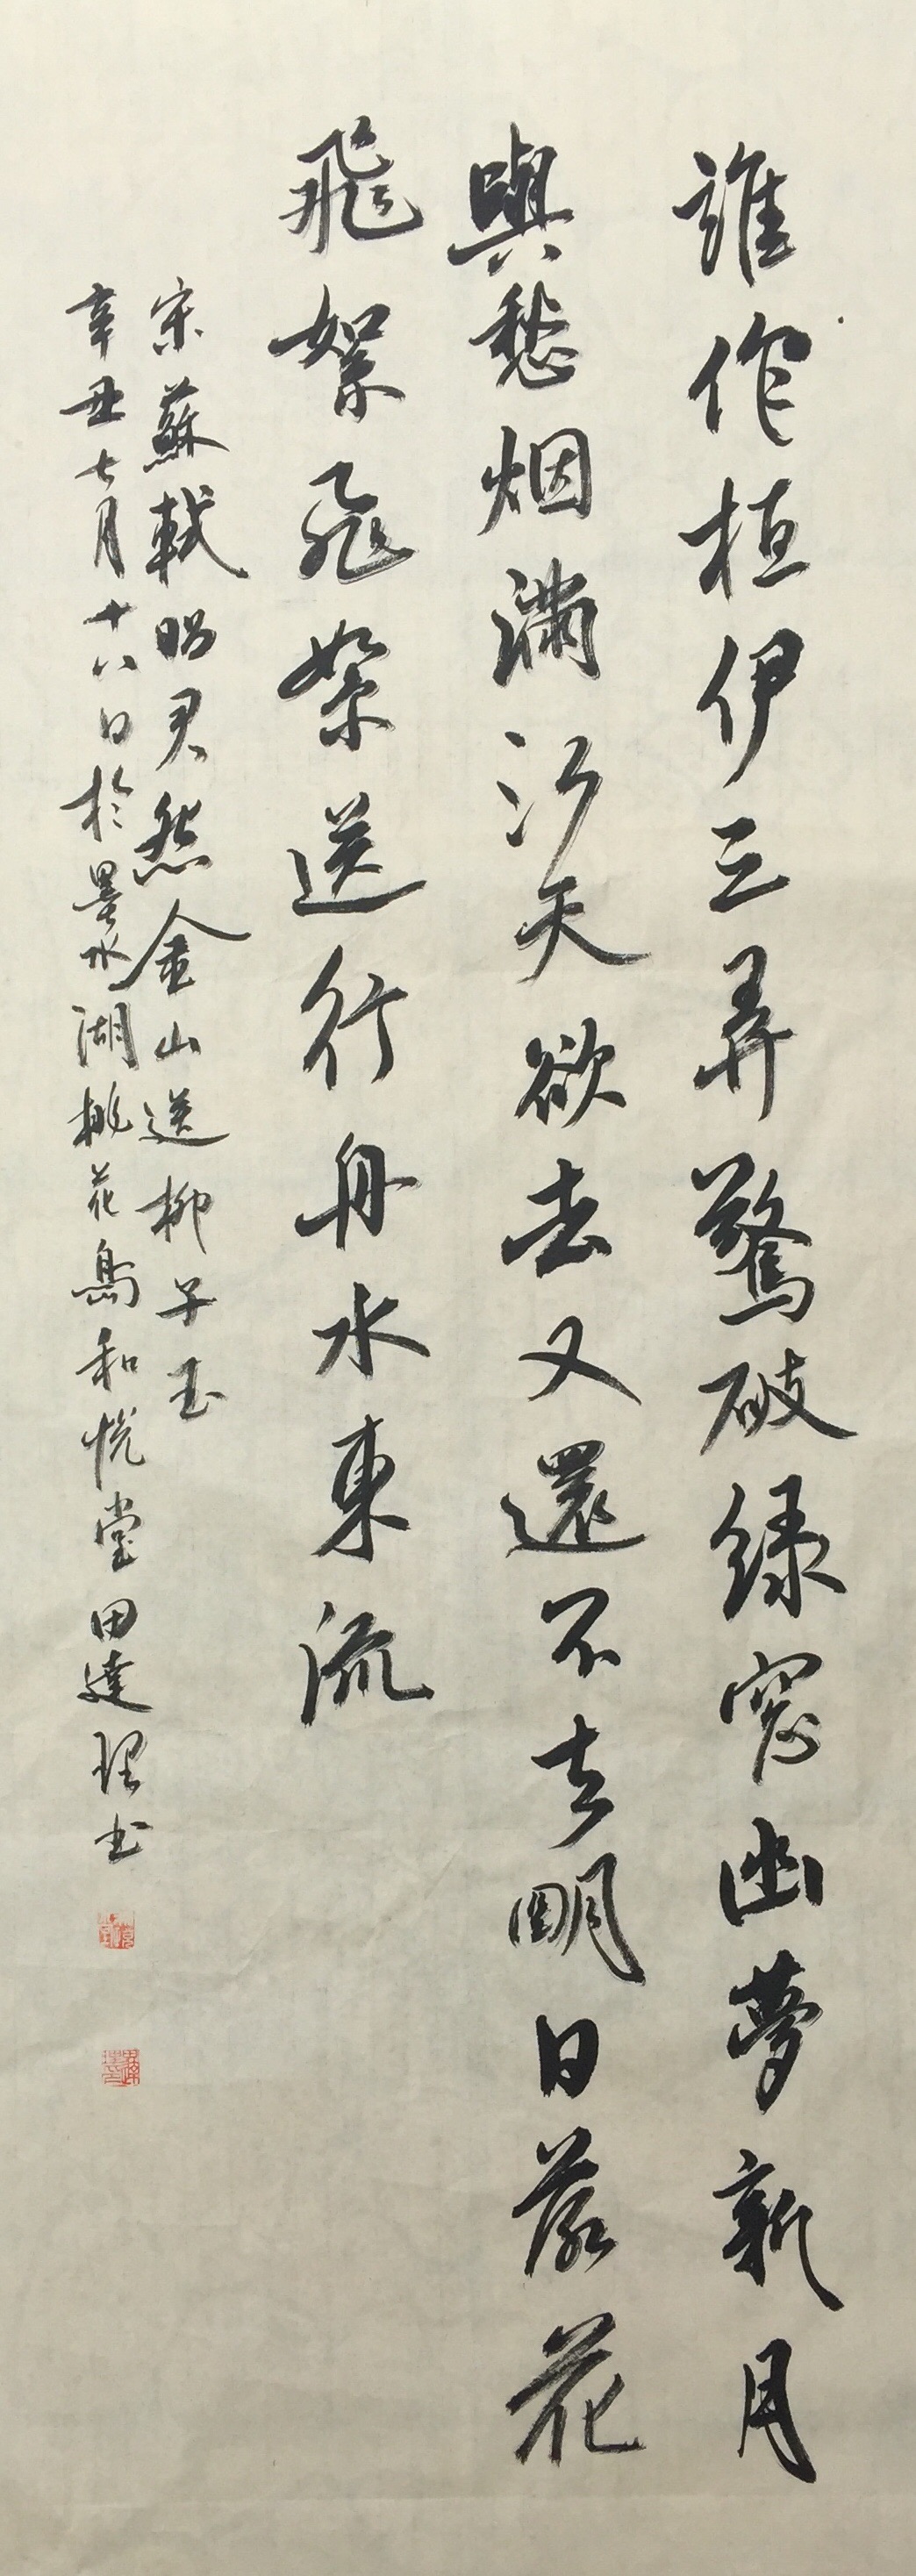 誰作桓伊三弄驚破緑窓幽夢新月
與愁烟滿江天欲去又還不去明日落花
飛絮飛絮送行舟水東流
宋蘇軾昭君怨金山送柳子玉
辛丑七月十八日於墨水湖桃花島和悦堂田達理书